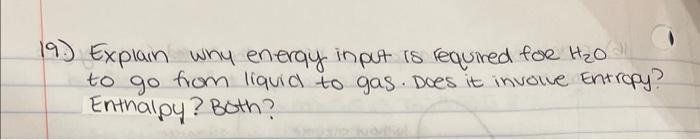 19.) Explain why energy input is required foe H2O
to go from liquid to gas. Does it involve Entropy?
Enthalpy? Both?